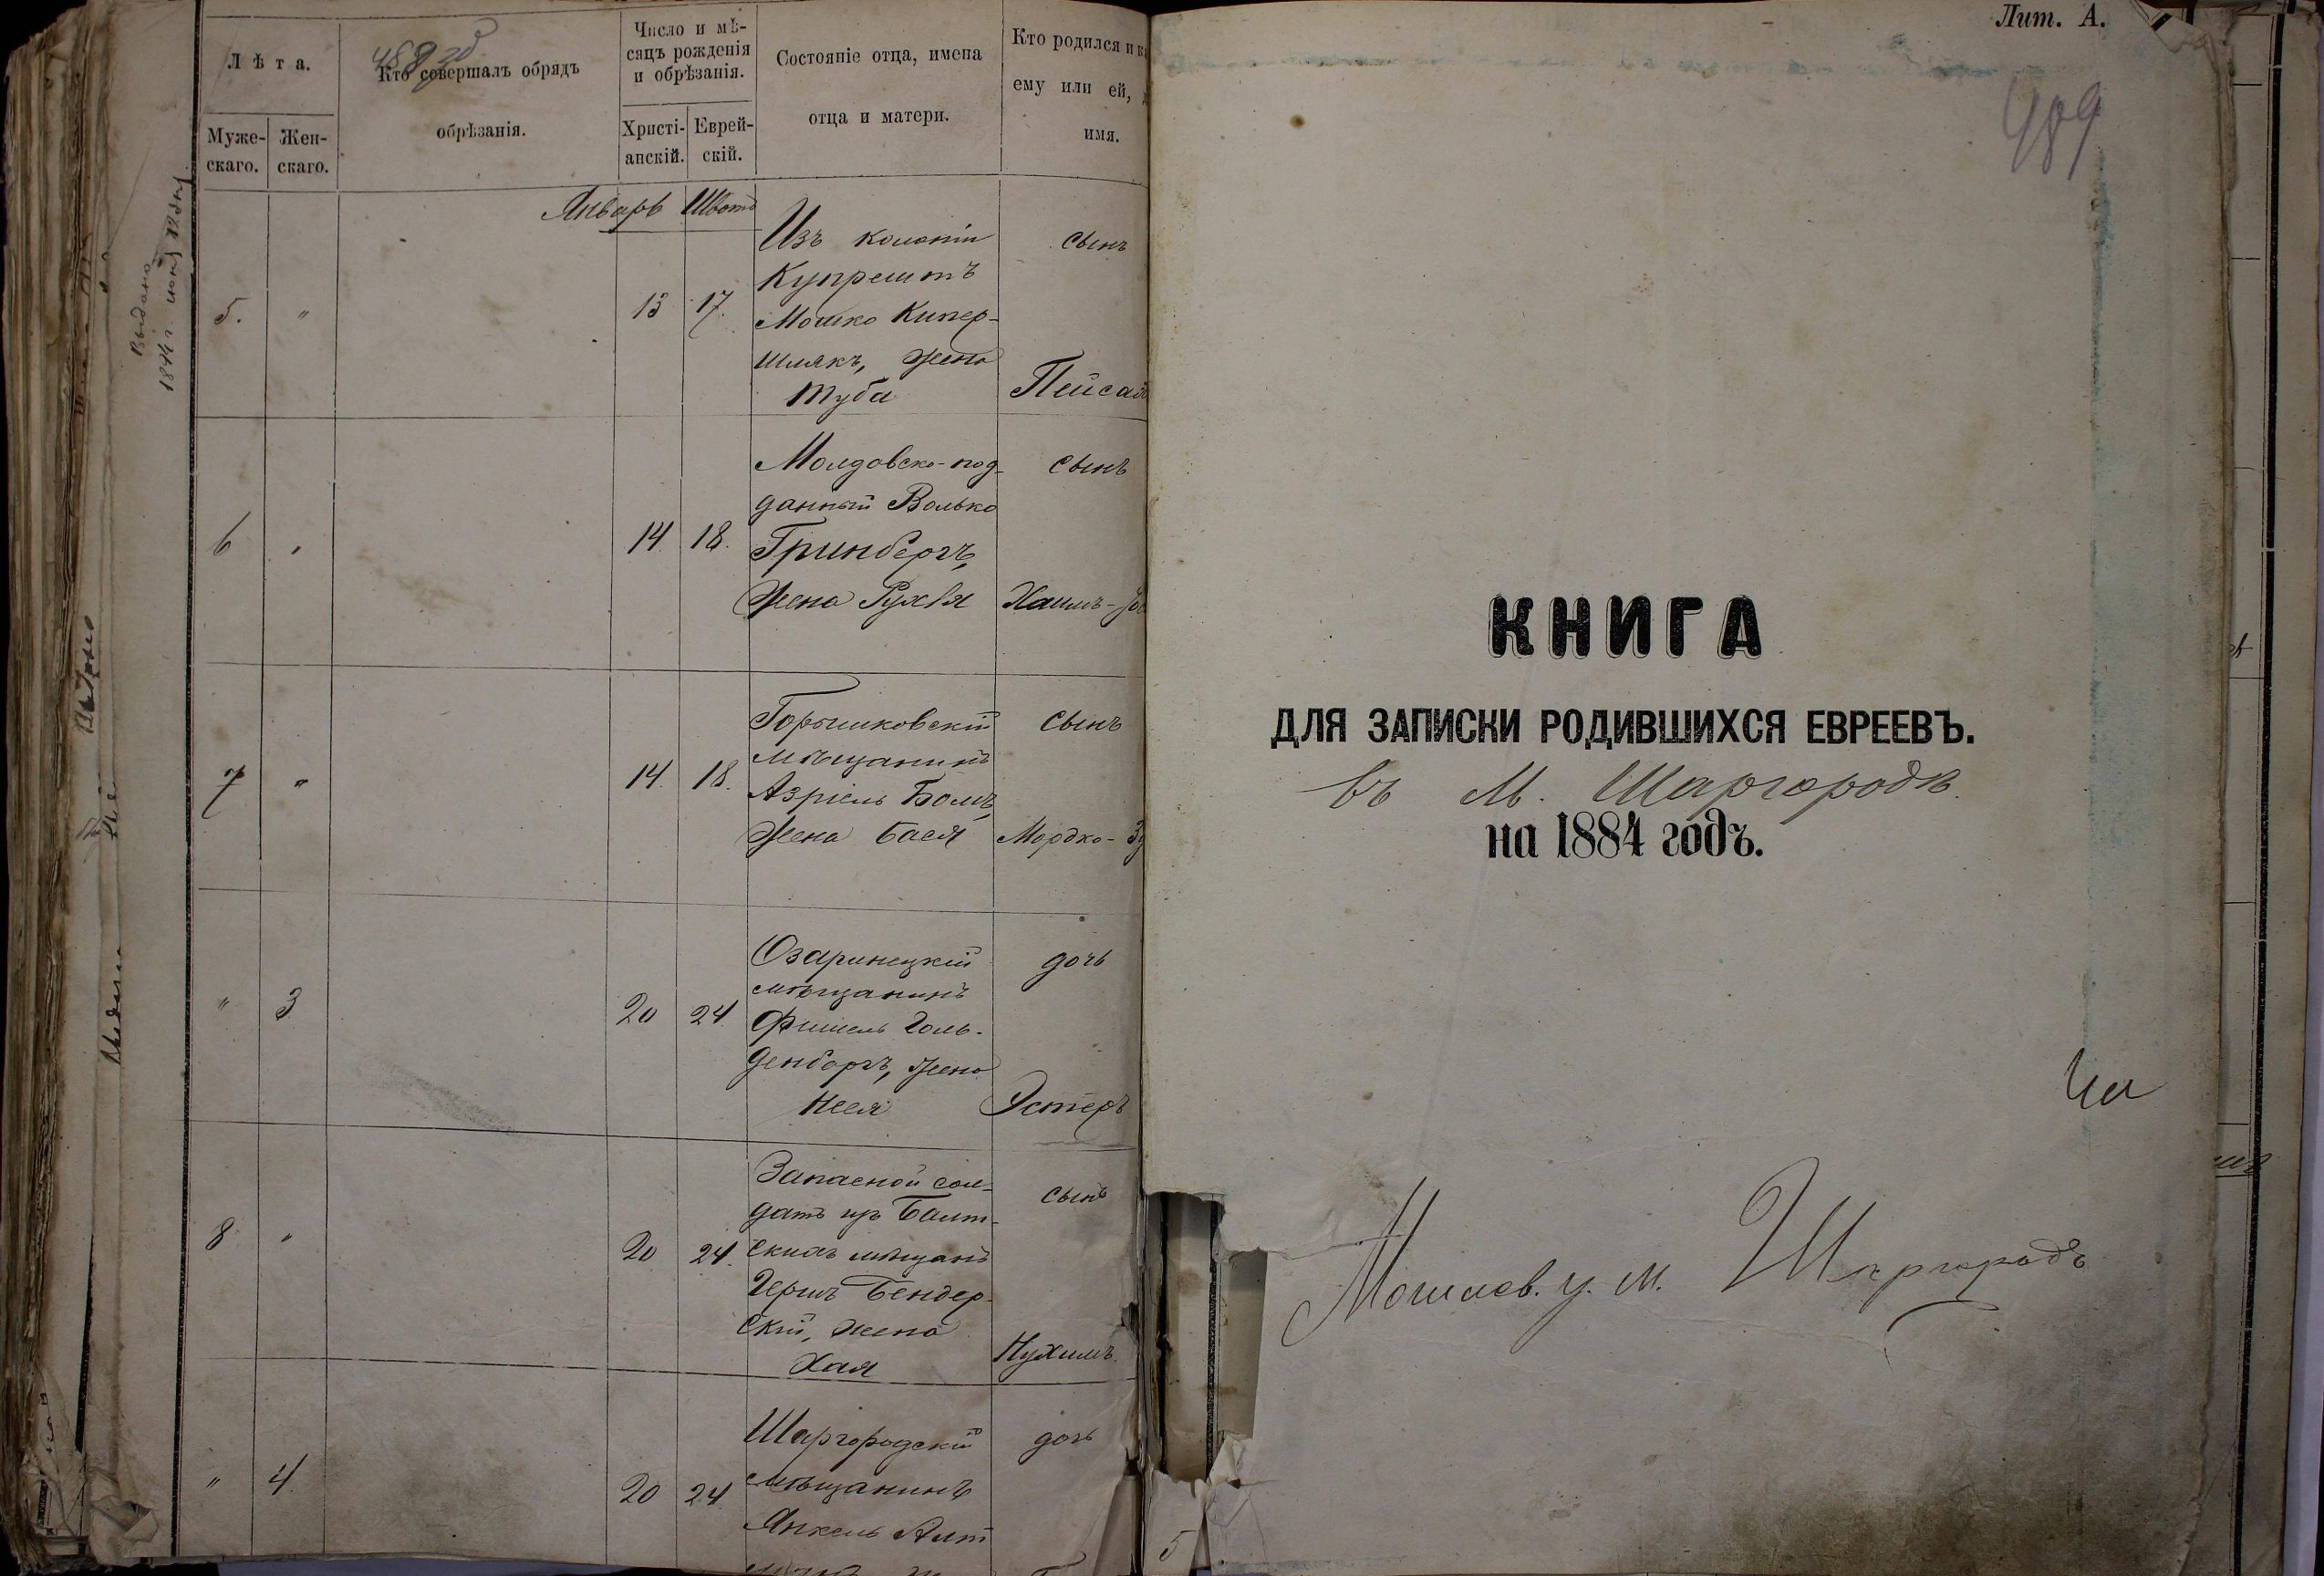 Лѣта.
Кто совершалъ обрядъ
обрѣзанія.
Число и мѣ-
сяцъ рожденія
и обрѣзанія.
Состояніе отца, имена
отца и матери.
Кто родился и
ему или ей,
имя.
Муже-
скаго.
Жен-
скаго.
Христі-
анскій.
Еврей-
скій.
Январь Шватъ
5. " 13 17.
Изъ колоніи
Купрештъ
Мошко Кипер-
шлякъ, жена
Туба
сынъ
6 " 14 18.
Молдовско-под-
данный Волько
Гринбергъ,
жена Рухля
сынъ
Хаимъ-
7 " 14. 18.
Горышковскій
мѣщанинъ
Азріель Бомъ,
жена Бася
сынъ
Мордко-
" 3 20 24.
Озаринецкій
мѣщанинъ
Фишель Голь-
денбергъ, жена
Неся
дочь
Эстеръ
8 " 20 24.
Запасной сол-
датъ изъ Балт-
скихъ мѣщанъ
Гершъ Бендер-
скій, жена
Хая
сынъ
Нухимъ.
" 4. 20 24.
Шаргородскій
мѣщанинъ
Янкель Алт
дочь
Выдано
Лит. А.
489
КНИГА
ДЛЯ ЗАПИСКИ РОДИВШИХСЯ ЕВРЕЕВЪ.
въ М. Шаргородѣ
на 1884 годъ.
Могилев. у. м. Шаргородъ
5